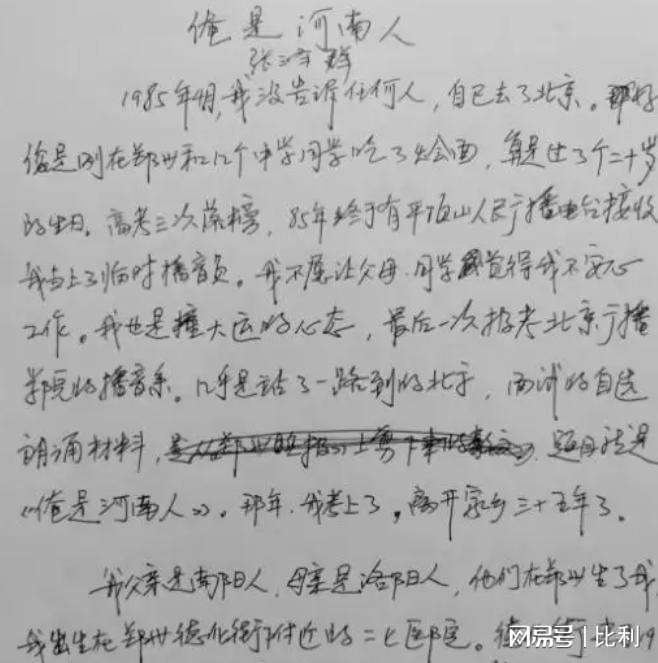 俺是河南人
张泽群
1985年4月,我没告诉任何人,自己去了北京。那好
像是刚在郑州和几个中学同学吃了烩面,算是过了个二十岁
的生日。高考三次落榜,85年终于有平顶山人民广播电台接收
我当上了临时播音员。我不愿让父母、同学觉得我不安心
工作。我也是撞大运的心态,最后一次报考北京广播
学院的播音系。几乎是站了一路到的北京,面试的自选
朗诵材料,是从郑州晚报上剪下来的散文,题目就是
《俺是河南人》。那年,我考上了,离开家乡三十五年了。
我父亲是南阳人,母亲是洛阳人,他们在郑州生了我,
我出生在郑州德化街附近的二七医院。德化街
网易号 | 比利